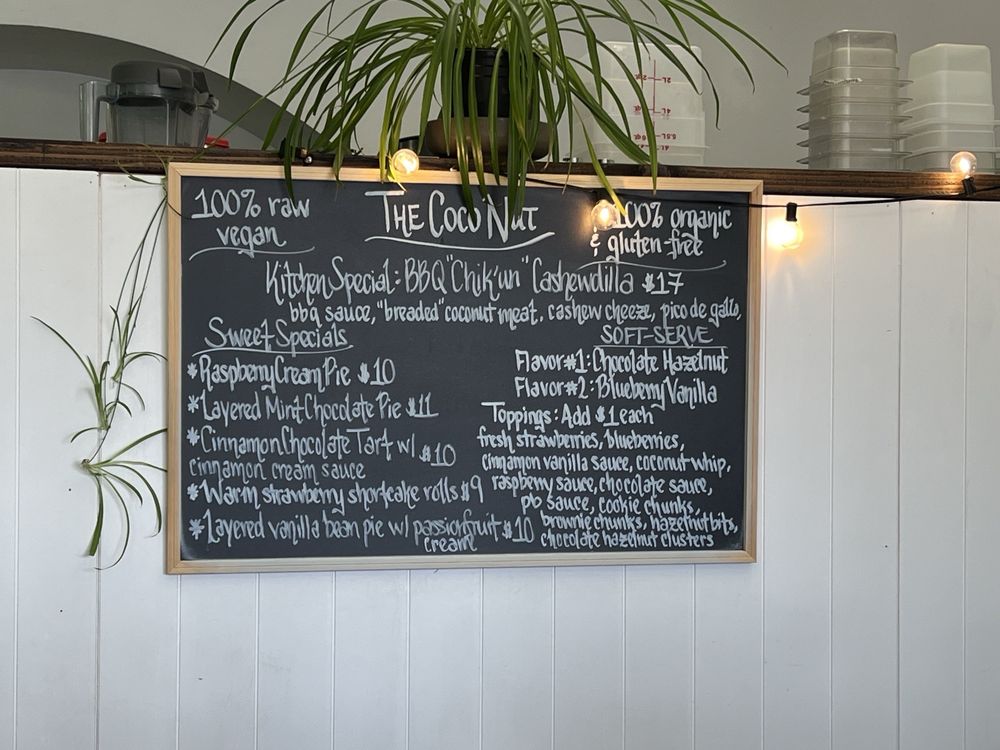 100% raw
vegan
THE COCO NUT
100% organic
& gluten-free
Kitchen Special: BBQ "Chik'un" Cashewdilla $17
bbq sauce, "breaded" coconut meat, cashew cheeze, pico de gallo,
Sweet Specials
*Raspberry Cream Pie $10
*Layered Mint Chocolate Pie $11
*Cinnamon Chocolate Tart w/ $10
cinnamon cream sauce
*Warm strawberry shortcake rolls $9
*Layered vanilla bean pie w/ passionfruit $10
creame
SOFT-SERVE
Flavor #1: Chocolate Hazelnut
Flavor #2: Blueberry Vanilla
Toppings: Add $1 each
fresh strawberries, blueberries,
cinnamon vanilla sauce, coconut whip,
raspberry sauce, chocolate sauce,
pb sauce, cookie chunks,
brownie chunks, hazelnut bits,
chocolate hazelnut clusters